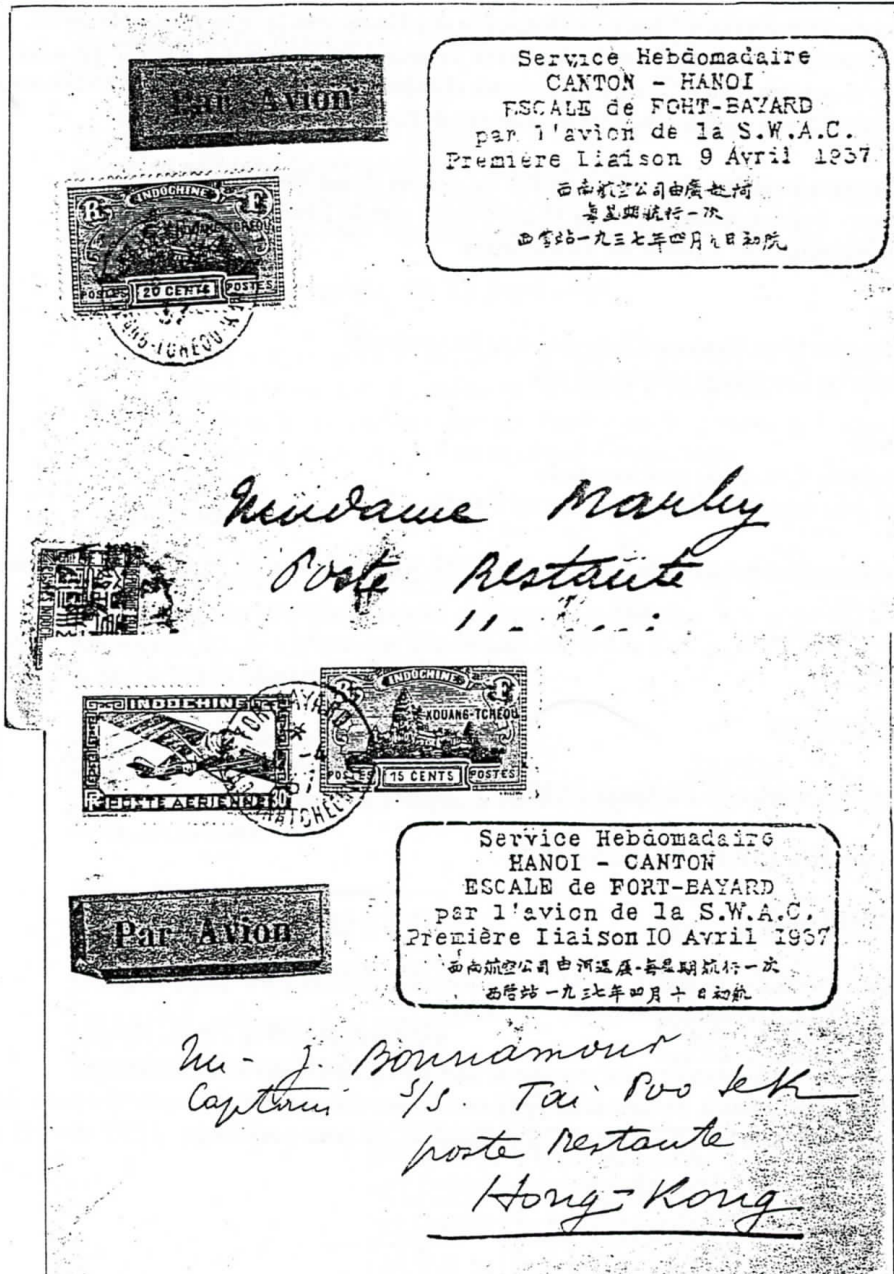 Par Avion
Service Hebdomadaire
CANTON - HANOI
ESCALE de FORT-BAYARD
par l'avion de la S.W.A.C.
Première Liaison 9 Avril 1937
西南航空公司由廣越河
每星期航行一次
西營站一九三七年四月九日初航
INDOCHINE
RF
KOUANG-TCHEOU
POSTES 20 CENTS POSTES
37
Madame
Poste Restante
INDOCHINE
POSTE AERIENNE
FORT-BAYARD
INDOCHINE
RF
KOUANG-TCHEOU
POSTES 15 CENTS POSTES
Service Hebdomadaire
HANOI - CANTON
ESCALE de FORT-BAYARD
par l'avion de la S.W.A.C.
Première Liaison 10 Avril 1937
西南航空公司由河返廣·每星期航行一次
西營站一九三七年四月十日初航
Par Avion
J. Bonnamour
S/S. Tai Poo Sek
poste Restante
Hong-Kong